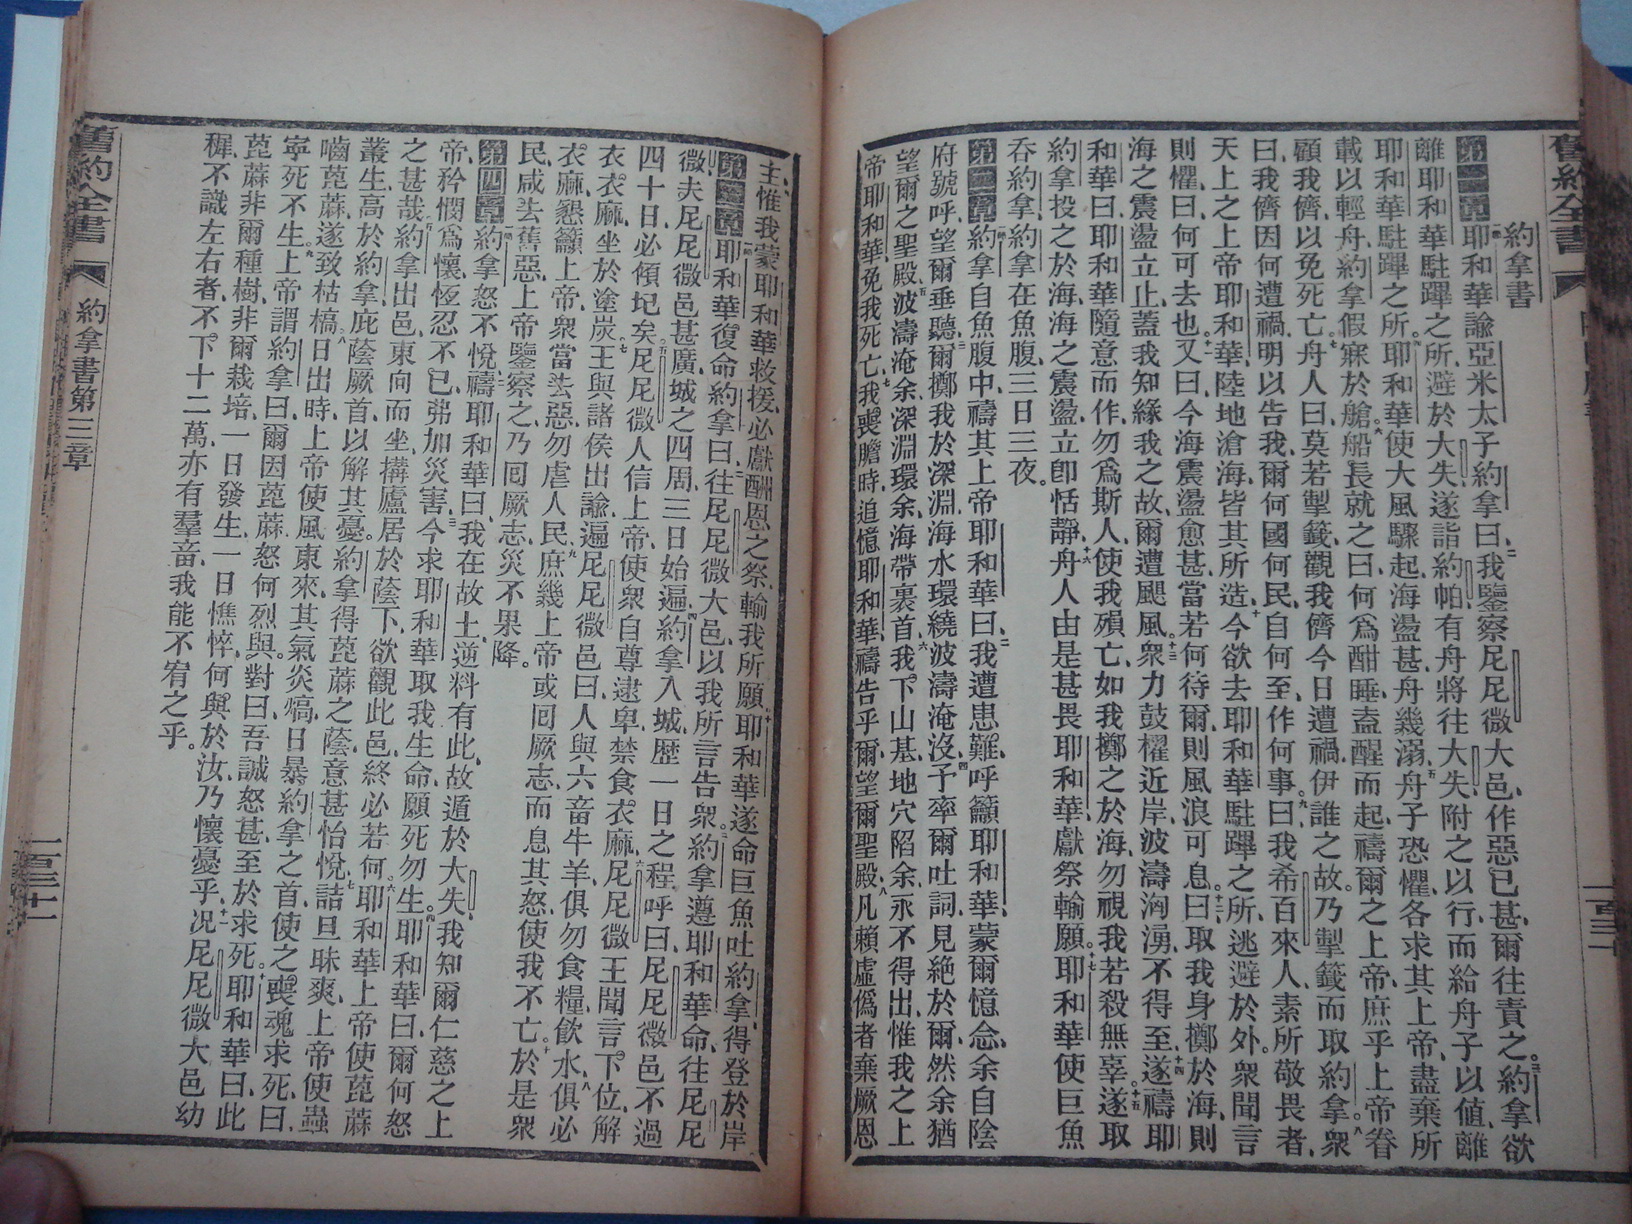 舊約全書
一百三十
約拿書
第一章耶和華諭亞米太子約拿曰、我鑒察尼尼微大邑、作惡已甚、爾往責之。約拿欲
離耶和華駐蹕之所、避於大失、遂詣約帕、有舟將往大失、附之以行、而給舟子以值、離
耶和華駐蹕之所。耶和華使大風驟起、海盪甚、舟幾溺、舟子恐懼、各求其上帝、盡棄所
載以輕舟、約拿假寐於艙。船長就之曰、何爲酣睡、盍醒而起、禱爾之上帝、庶乎上帝眷
顧我儕、以免死亡。舟人曰、莫若掣籤、觀我儕今日遭禍、伊誰之故。乃掣籤而取約拿。衆
曰、我儕因何遭禍、明以告我、爾何國何民、自何至、作何事。曰、我希百來人、素所敬畏者、
天上之上帝耶和華、陸地滄海、皆其所造。今欲去耶和華駐蹕之所、逃避於外。衆聞言
則懼、曰、何可去也。又曰、今海震盪愈甚、當若何待爾、則風浪可息。曰、取我身擲於海、則
海之震盪立止、蓋我知緣我之故、爾遭颶風。衆力鼓櫂近岸、波濤洶湧、不得至。遂禱耶
和華曰、耶和華隨意而作、勿爲斯人、使我殞亡、如我擲之於海、勿視我若殺無辜。遂取
約拿投之於海、海之震盪、立卽恬靜。舟人由是甚畏耶和華、獻祭輸願。耶和華使巨魚
吞約拿、約拿在魚腹、三日三夜。
第二章約拿自魚腹中、禱其上帝耶和華曰、我遭患難、呼籲耶和華、蒙爾憶念、余自陰
府號呼、望爾垂聽、爾擲我於深淵、海水環繞、波濤淹沒、予卒爾吐詞、見絶於爾、然余猶
望爾之聖殿、波濤淹余、深淵環余、海帶裹首、我下山基、地穴陷余、永不得出、惟我之上
帝耶和華、免我死亡、我喪膽時、追憶耶和華、禱告乎爾、望爾聖殿、凡賴虛僞者、棄厥恩
主、惟我蒙耶和華救援、必獻酬恩之祭、輸我所願。耶和華遂命巨魚吐約拿、得登於岸
第三章耶和華復命約拿曰、往尼尼微大邑、以我所言告衆。約拿遵耶和華命、往尼尼
微、夫尼尼微邑甚廣、城之四周、三日始遍。約拿入城、歷一日之程、呼曰、尼尼微邑不過
四十日、必傾圮矣。尼尼微人信上帝、使衆自尊逮卑、禁食衣麻。尼尼微王聞言、下位解
衣、衣麻、坐於塗炭。王與諸侯出諭、遍尼尼微邑曰、人與六畜牛羊、俱勿食糧飲水、俱必
衣麻、懇籲上帝、衆當去惡、勿虐人民、庶幾上帝或回厥志、而息其怒、使我不亡。於是衆
民咸去舊惡、上帝鑒察之、乃回厥志、災不果降。
第四章約拿怒不悅、禱耶和華曰、我在故土、逆料有此、故遁於大失、我知爾仁慈之上
帝、矜憫爲懷、恆忍不已、弗加災害、今求耶和華取我生命、願死勿生。耶和華曰、爾何怒
之甚哉。約拿出邑、東向而坐、搆廬居於蔭下、欲觀此邑、終必若何。耶和華上帝使蓖蔴
叢生、高於約拿、庇蔭厥首、以解其憂。約拿得蓖蔴之蔭、意甚怡悅、詰旦昧爽、上帝使蟲
嚙蓖蔴、遂致枯槁、日出時、上帝使風東來、其氣炎熇、日暴約拿之首、使之喪魂求死、曰、
寧死不生。上帝謂約拿曰、爾因蓖蔴怒何烈與。對曰、吾誠怒甚、至於求死。耶和華曰、此
蓖蔴非爾種樹、非爾栽培、一日發生、一日憔悴、何與於汝、乃懷憂乎、况尼尼微大邑、幼
穉不識左右者、不下十二萬、亦有羣畜、我能不宥之乎。
舊約全書
約拿書第三章
一百三十一